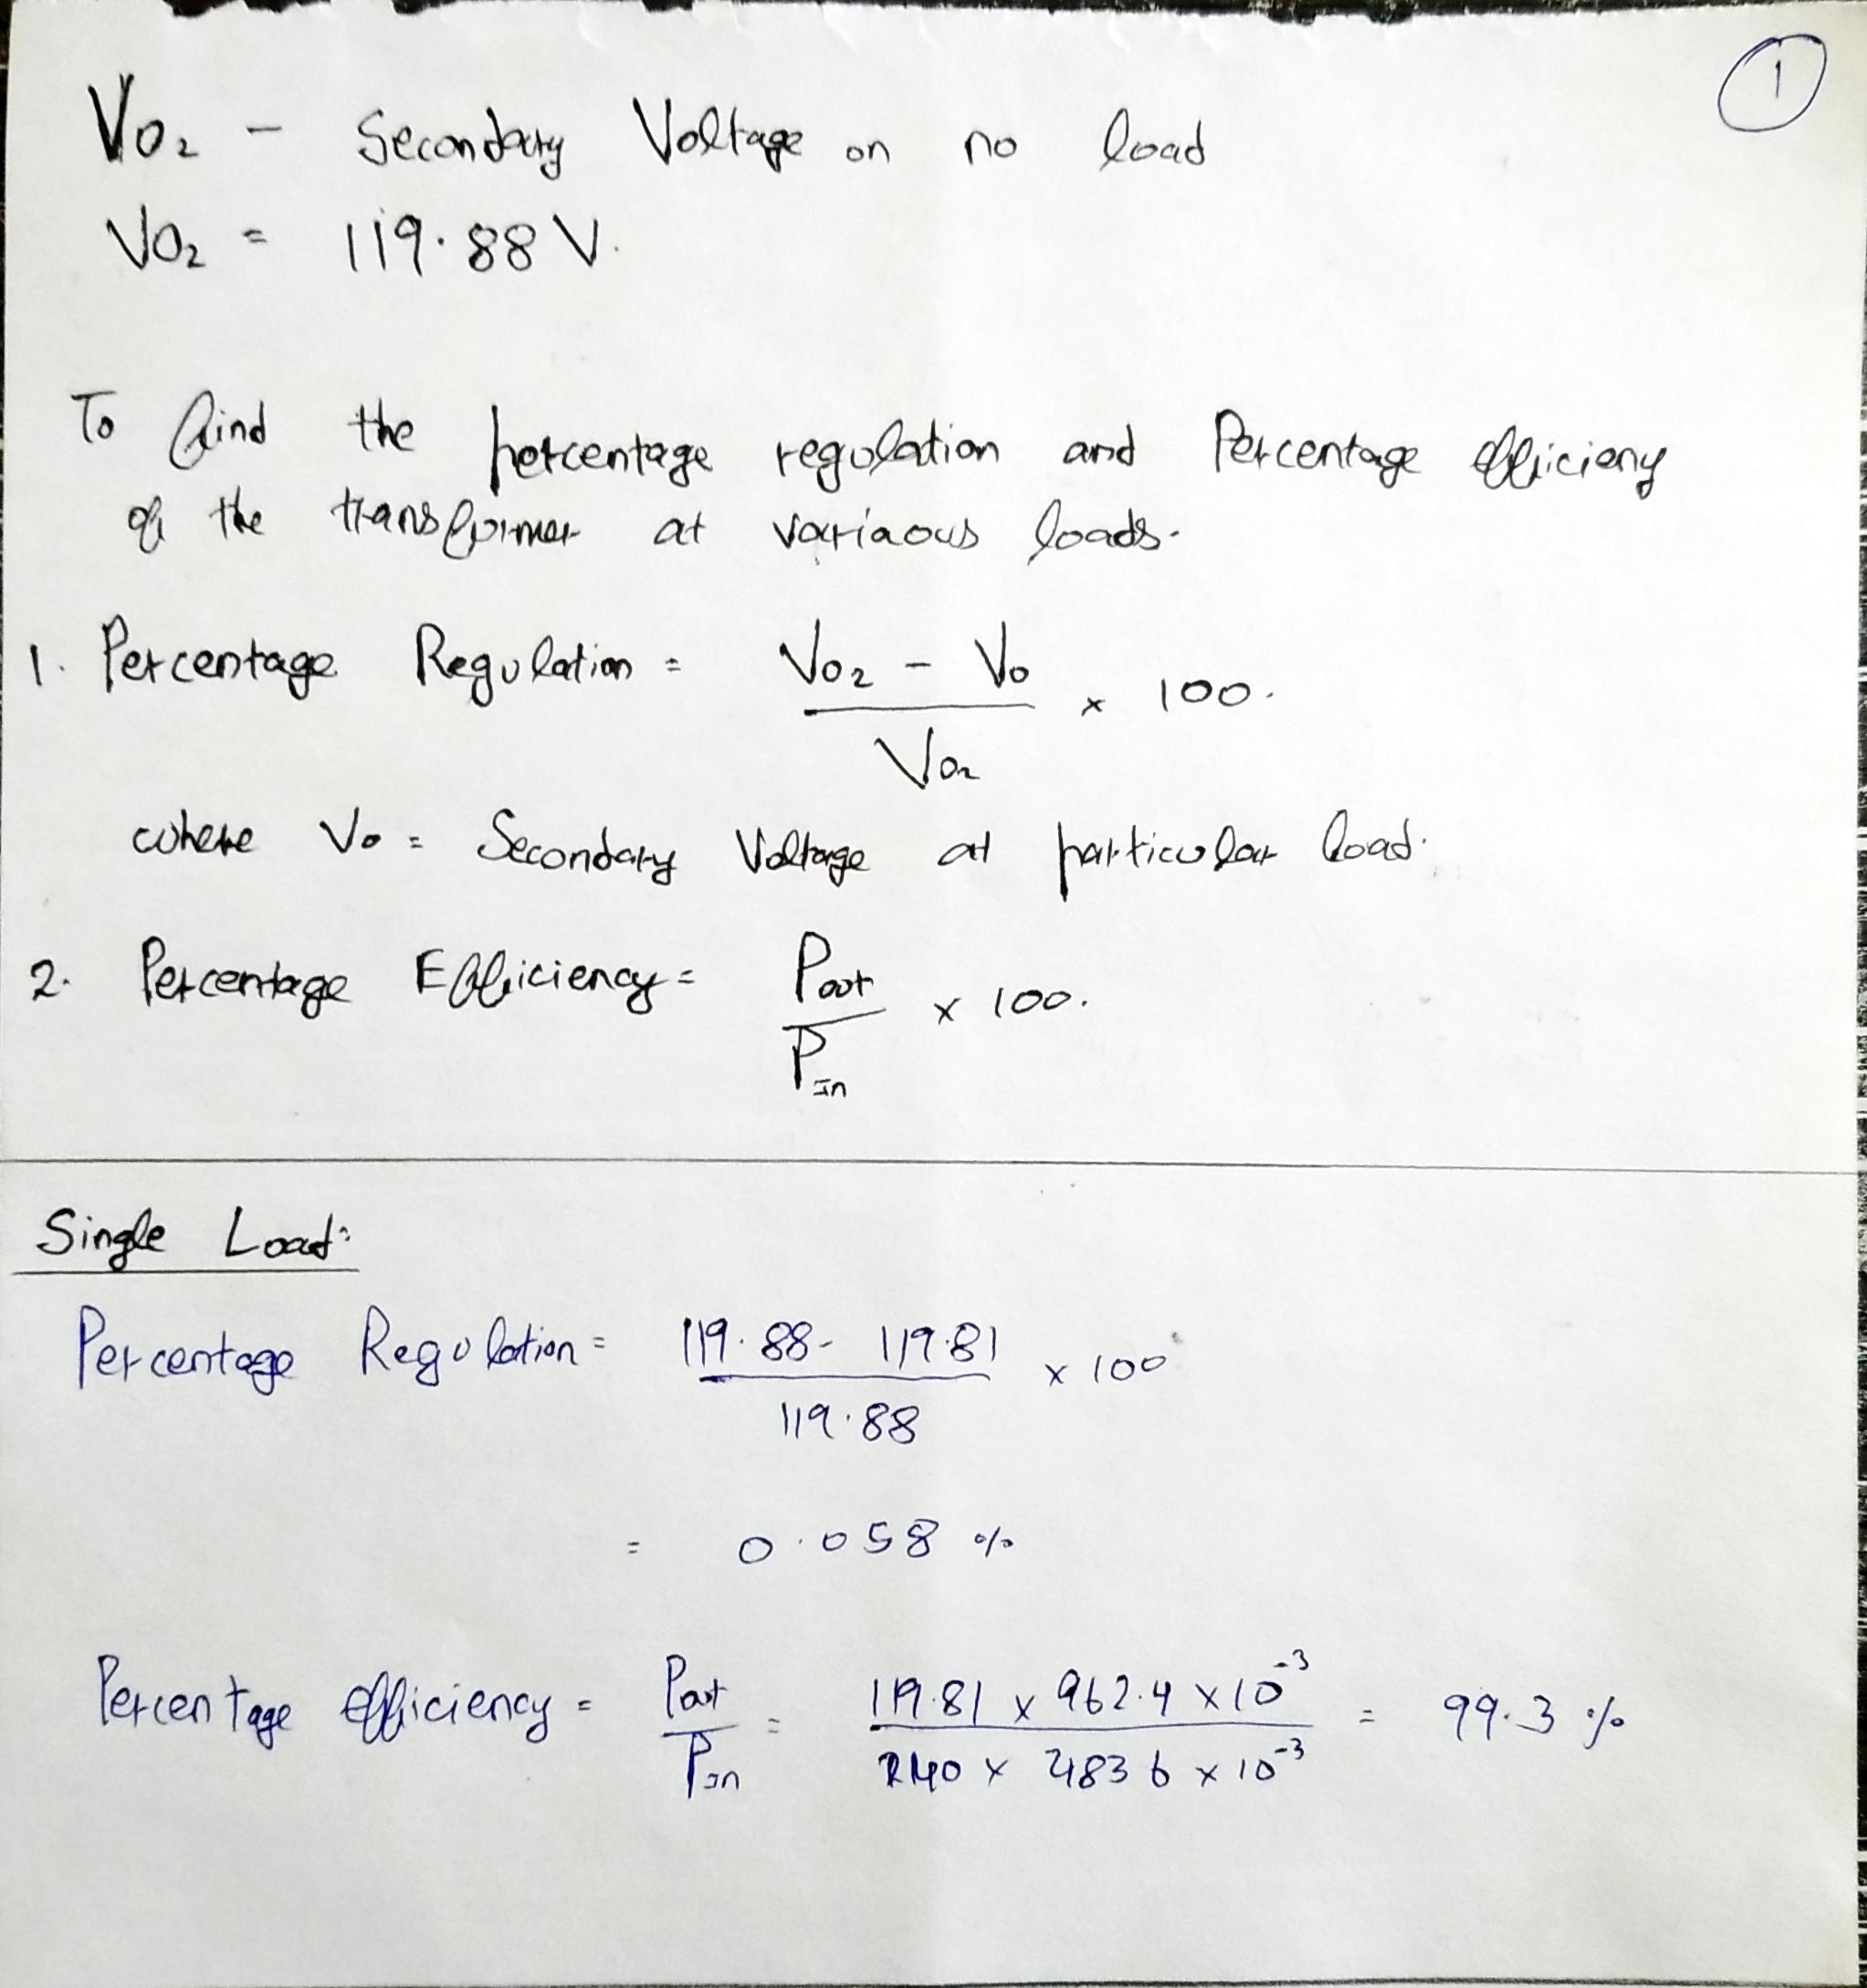 1
V₀₂ - Secondary Voltage on no load
V₀₂ = 119.88 V.
To find the percentage regulation and Percentage efficieny
of the transformer at variaous loads.
1. Percentage Regulation = (V₀₂ - V₀) / V₀₂ x 100.
where V₀ = Secondary Voltage at particular load.
2. Percentage Efficiency = Pout / PIn x 100.
Single Load:
Percentage Regulation = (119.88 - 119.81) / 119.88 x 100
= 0.058 %
Percentage efficiency = Pout / PIn = (119.81 x 962.4 x 10⁻³) / (240 x 483 6 x 10⁻³) = 99.3 %